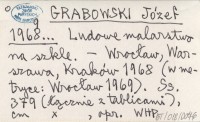 GRABOWSKI Józef
1968... Ludowe malarstwo
na szkle. – Wrocław, War-
szawa, Kraków 1968 (w me-
tryce: Wrocław 1969). Ss.
379 (łącznie z tablicami),
cm x , opr. WHF